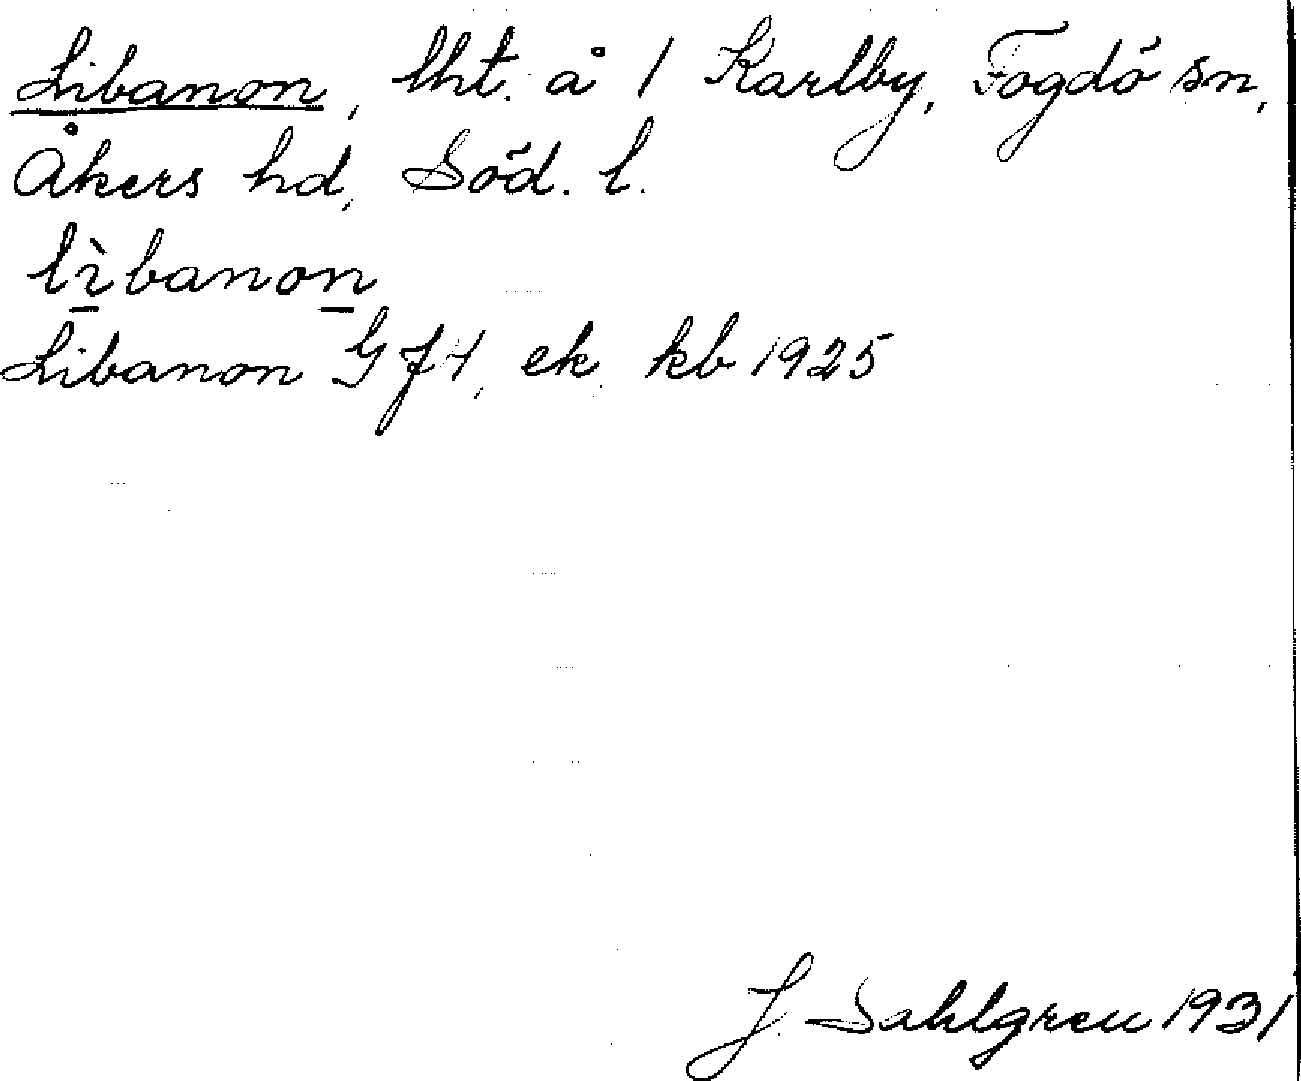 Libanon, lht. å 1 Karlby, Fogdö sn,
Åkers hd, Söd. l.
lìbanon
Libanon GJ4, ek, kb 1925
J. Sahlgren 1931